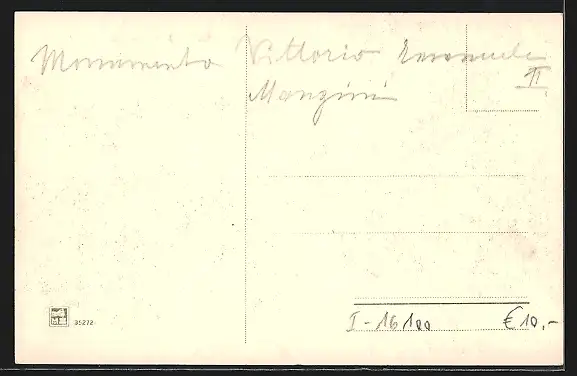 Monumento Vittorio Emanuele
II
Manzini
35272
I - 16100 € 10,-